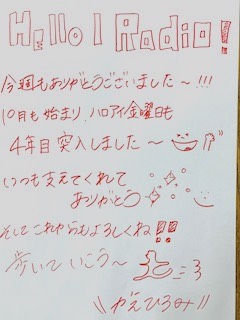 Hello I Radio!
今週もありがとうございました〜!!!
10月も始まり、ハロアイ金曜日も
4年目突入しました〜
いつも支えてくれて
ありがとう
そしてこれからもよろしくね!!
歩いていこう〜
\\かえひろみ//